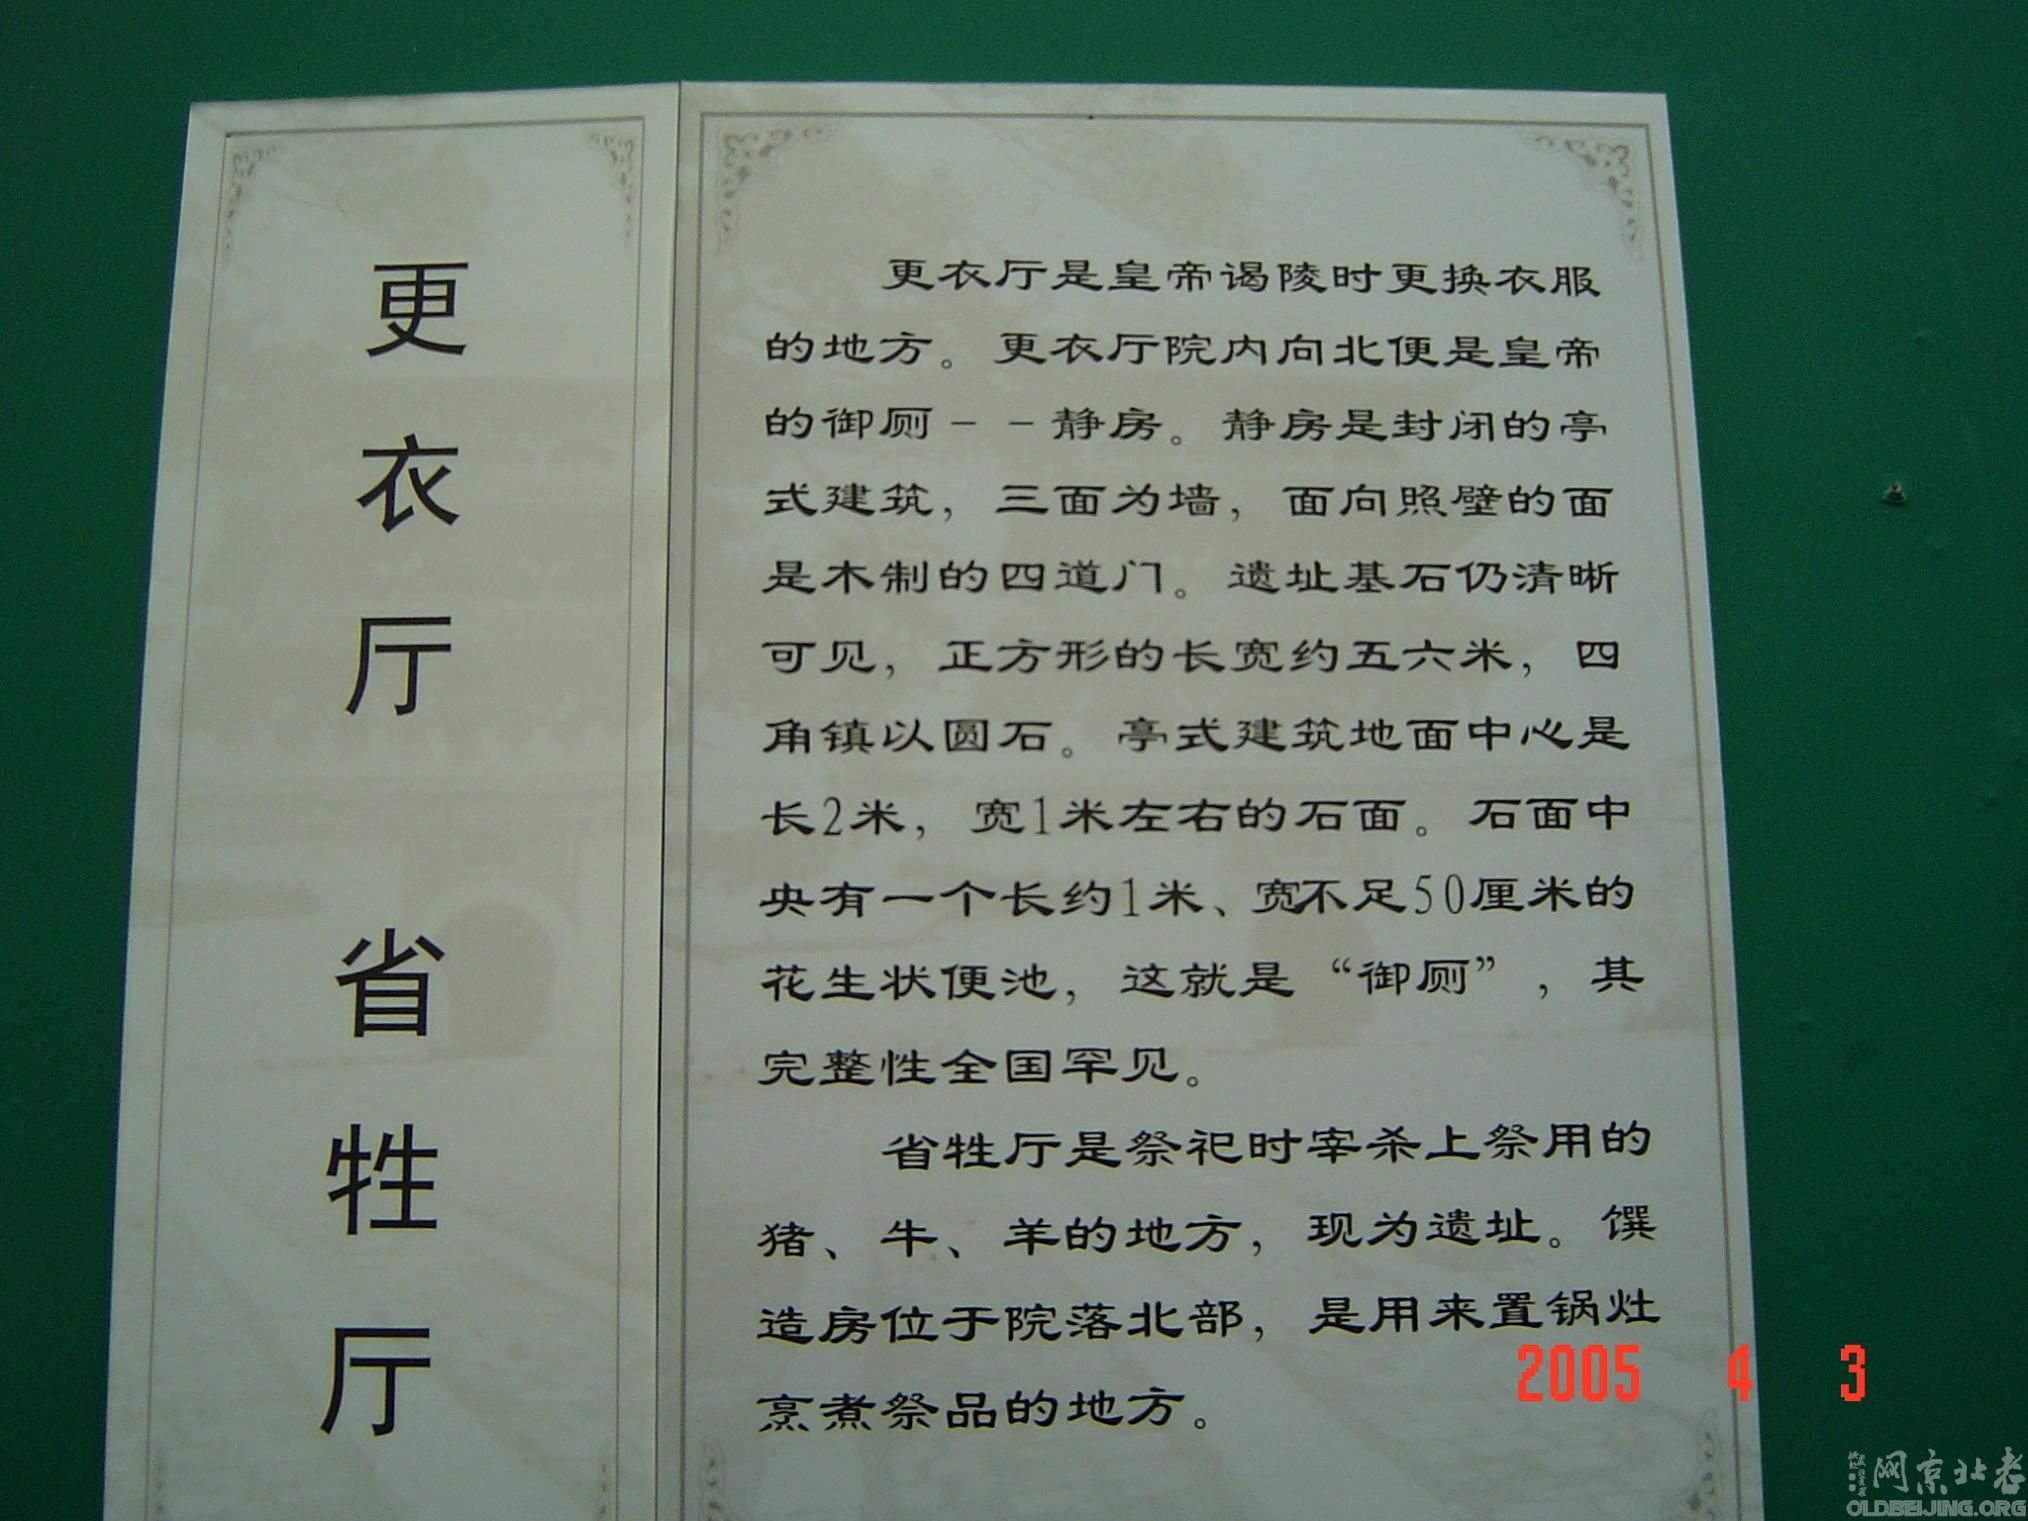 更衣厅 省牲厅
更衣厅是皇帝谒陵时更换衣服
的地方。更衣厅院内向北便是皇帝
的御厕--静房。静房是封闭的亭
式建筑，三面为墙，面向照壁的面
是木制的四道门。遗址基石仍清晰
可见，正方形的长宽约五六米，四
角镇以圆石。亭式建筑地面中心是
长2米，宽1米左右的石面。石面中
央有一个长约1米、宽不足50厘米的
花生状便池，这就是“御厕”，其
完整性全国罕见。
省牲厅是祭祀时宰杀上祭用的
猪、牛、羊的地方，现为遗址。馔
造房位于院落北部，是用来置锅灶
烹煮祭品的地方。
2005 4 3
老北京网
OLDBEIJING.ORG